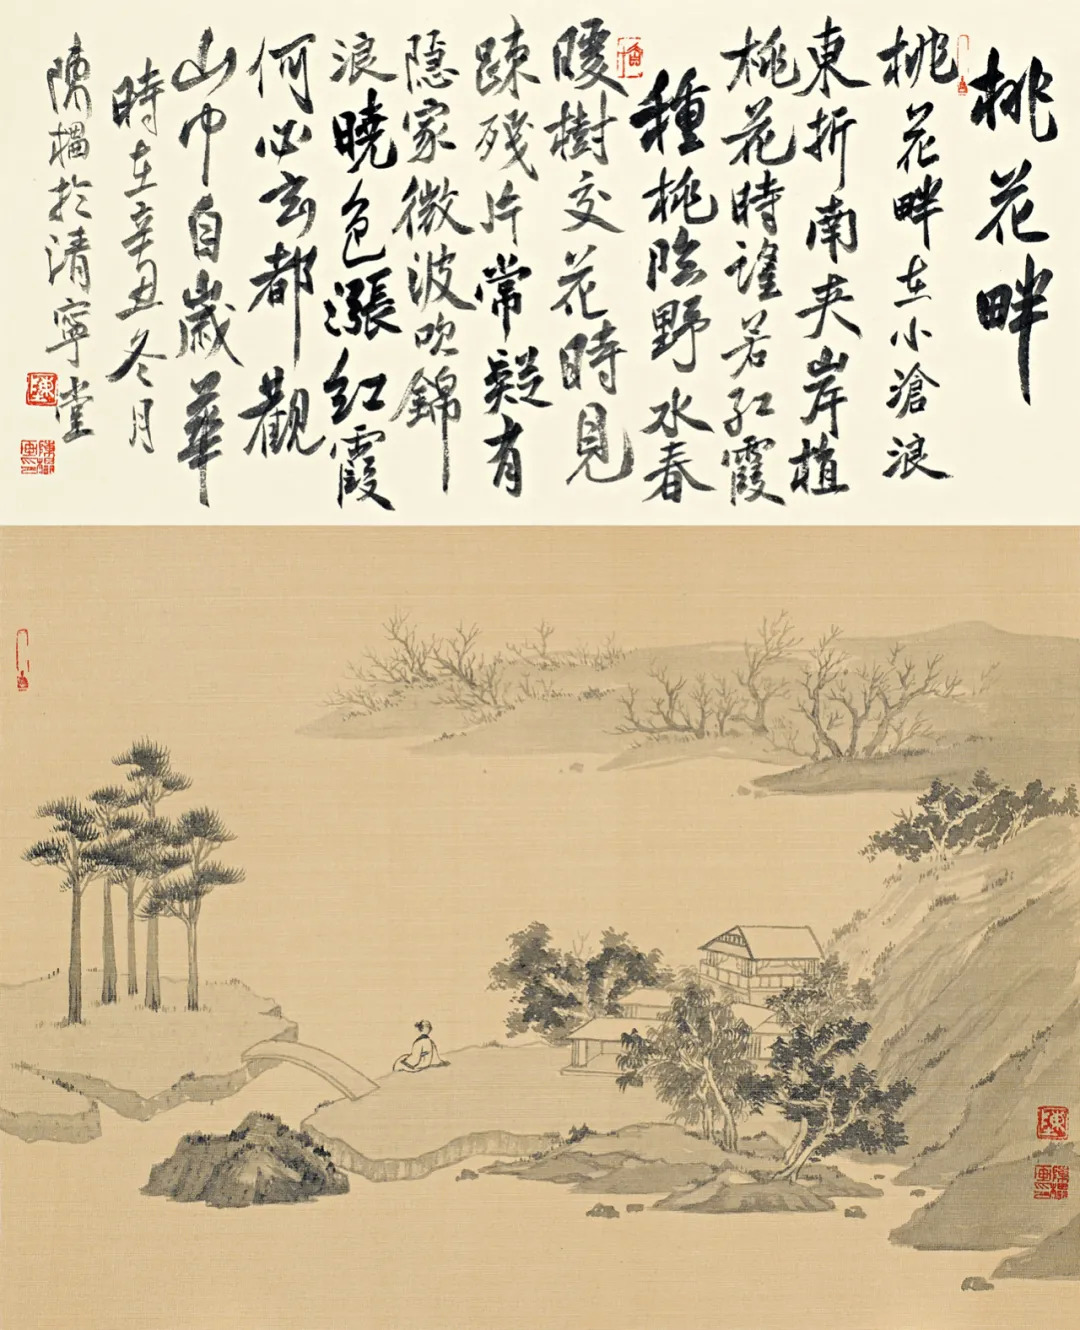 桃花畔
桃花畔在小滄浪
東折南夾岸植
桃花時望若紅霞
種桃臨野水春
暖樹交花時見
踈殘片常疑有
隱家微波吹錦
浪曉色漲紅霞
何必玄都觀
山中自歲華
時在辛丑冬月
陳於清寧堂